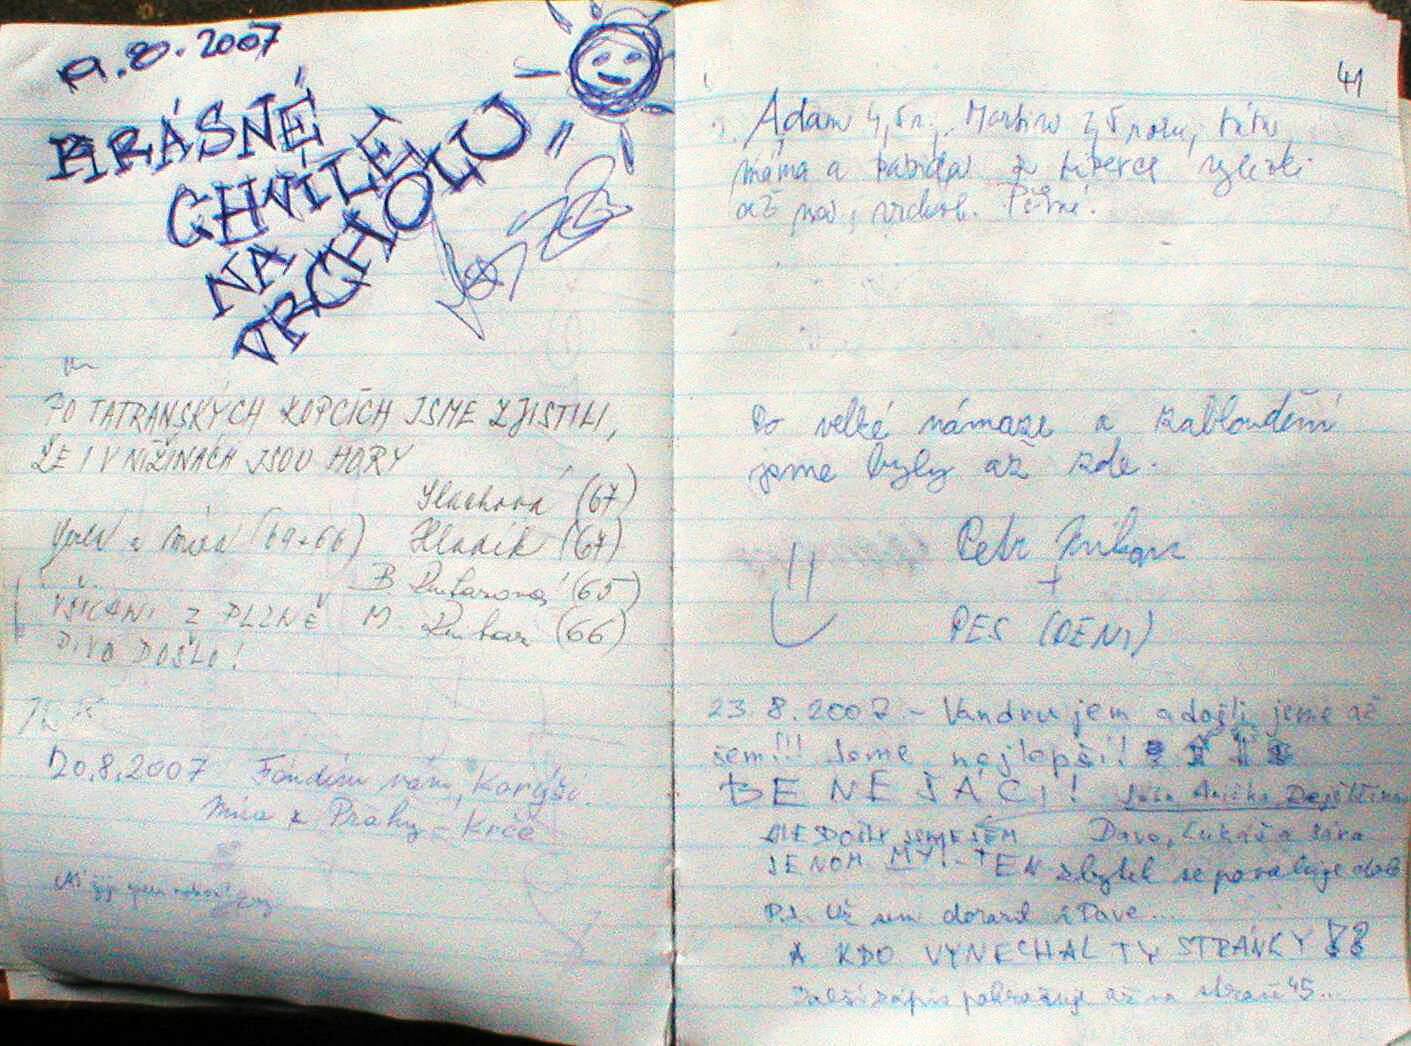 19.8.2007
KRÁSNÉ
CHVÍLE
NA
VRCHOLU
PO TATRANSKÝCH KOPCÍCH JSME ZJISTILI,
ŽE I V NIŽINÁCH JSOU HORY
(67)
(69+66) Hladík (67)
B. (65)
VŠICHNI Z PLZNĚ M. (66)
DIVO DOŠLO!
20.8.2007 Fandím vám, Korýši.
Míra z Prahy - Krče
41
Adam 4,5 r., Martin 2,5 roku, táta,
máma a z Liberce vylezli
až na vrchol. Pěkné.
Po velké námaze a zabloudění
jsme byly až zde.
Petr
+
PES (DENY)
23.8.2007 - Vandrujem a došli jsme až
sem!!! Jsme nejlepší!
BENEŠÁCI!
ALE DOŠLI JSME SEM Davo, Lukáš a Sára
JENOM MY... TEN zbytek se povaluje dole
P.S. Už sem dorazil i Dave...
A KDO VYNECHAL TY STRÁNKY ??
Další zápis pokračuje až na straně 45...